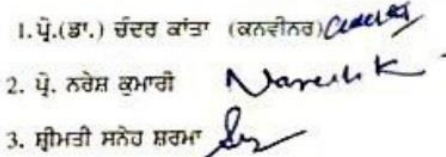 1. ਪ੍ਰੋ.(ਡਾ.) ਚੰਦਰ ਕਾਂਤਾ (ਕਨਵੀਨਰ)
2. ਪ੍ਰੋ. ਨਰੇਸ਼ ਕੁਮਾਰੀ Naresh K
3. ਸ਼੍ਰੀਮਤੀ ਸਨੇਹ ਸ਼ਰਮਾ